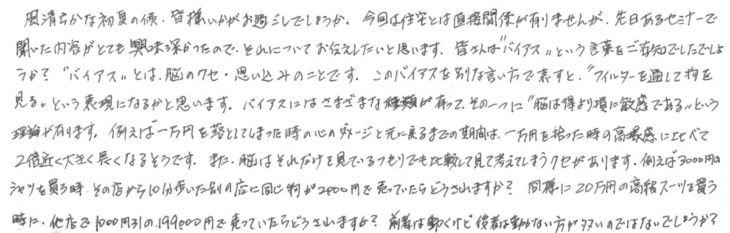 風清らかな初夏の候、皆様いかがお過ごしでしょうか。今回は住宅とは直接関係が有りませんが、先日あるセミナーで
聞いた内容がとても興味深かったので、それについてお伝えしたいと思います。皆さんは"バイアス"という言葉をご存知でしたでしょ
うか?"バイアス"とは、脳のクセ・思い込みのことです。このバイアスを別な言い方で表すと、"フィルターを通して物を
見る"という表現になるかと思います。バイアスにはさまざまな種類が有って、その一つに"脳は得より損に敏感である"という
理論が有ります。例えば一万円を落としてしまった時の心のダメージと元に戻るまでの期間は、一万円を拾った時の高揚感に比べて
2倍近く大きく長くなるそうです。また、脳はそれだけを見ているつもりでも比較して見て考えてしまうクセがあります。例えば3000円の
シャツを買う時、その店から10分歩いた別の店に同じ物が2000円で売っていたらどうされますか?同様に20万円の高級スーツを買う
時に、他店で1000円引の199,000円で売っていたらどうされますか?前者は動くけど後者は動かない方が多いのではないでしょうか?